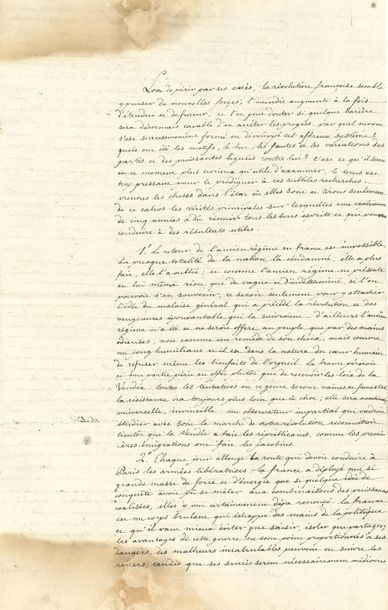 Loin de périr par ses excès, la révolution françoise semble
puiser de nouvelles forces; l'incendie augmente à la fois
d'étendue et de fureur, et l'on peut douter si quelque barrière
sera désormais capable d'en arrêter les progrès. par quel moyen
s'est successivement formé ou développé cet affreux système?
quels ont été les motifs, le but, les fautes et les variations des
partis et des puissances liguées contre lui? c'est ce qu'il seroit
en ce moment plus curieux qu'utile d'examiner. le tems est
trop pressant pour le prodiguer à ces subtiles recherches.
prenons les choses dans l'état où elles sont et tirons seulement
de ce cahos les vérités principales sur lesquelles une expérience
de cinq années a dû réunir tous les bons esprits et qui peuvent
conduire à des résultats utiles.
1.° Le retour de l'ancien régime en france est impossible.
La presque totalité de la nation l'a condamné; elle a plus
fait, elle l'a oublié; et comme l'ancien régime ne présente
en lui même rien que de vague et d'indéterminé, si l'on
pouvoit s'en souvenir, ce seroit seulement pour y attacher
l'idée du malaise général qui a précédé la révolution et des
vengeances épouvantables qui la suivroient. d'ailleurs l'ancien
régime n'a été et ne seroit offert au peuple que par des mains
odieuses, non comme un remède de son choix, mais comme
un joug humiliant et il est dans la nature du coeur humain
de refuser même les bienfaits de l'orgueil. la france périroit
une partie plutôt que de recevoir les lois de la
Vendée. toutes les tentatives en ce genre seront vaines et funestes.
la résistance ira toujours plus loin que le choc; elle sera
universelle, invincible. un observateur impartial qui voudra
étudier avec soin la marche de notre révolution reconnoitra
bientôt que la Vendée a fait les républicains, comme les premières
émigrations ont fait les Jacobins.
2.° Chaque jour allonge la route qui devoit conduire à
Paris les armées libératrices. la france a déployé une si
grande masse de force et d'énergie que si quelque idée de
conquête avoit pu se mêler aux combinaisons des puissances
coalisées, elles y ont certainement déjà renoncé. la france
est un corps brulant qui échappe des mains de la politique
et qu'il vaut mieux éviter que saisir, isoler que partager.
les avantages de cette guerre ne sont point proportionnés à ses
dangers, des malheurs incalculables peuvent en suivre les
revers, tandis que ses succès seront nécessairement médiocres